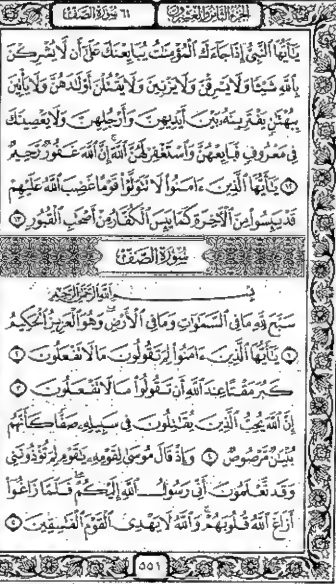 الجزء الثامن والعشرون ٦١ سورة الصف
يَٰٓأَيُّهَا ٱلنَّبِىُّ إِذَا جَآءَكَ ٱلْمُؤْمِنَٰتُ يُبَايِعْنَكَ عَلَىٰٓ أَن لَّا يُشْرِكْنَ
بِٱللَّهِ شَيْـًٔا وَلَا يَسْرِقْنَ وَلَا يَزْنِينَ وَلَا يَقْتُلْنَ أَوْلَٰدَهُنَّ وَلَا يَأْتِينَ
بِبُهْتَٰنٍ يَفْتَرِينَهُۥ بَيْنَ أَيْدِيهِنَّ وَأَرْجُلِهِنَّ وَلَا يَعْصِينَكَ
فِى مَعْرُوفٍ فَبَايِعْهُنَّ وَٱسْتَغْفِرْ لَهُنَّ ٱللَّهَ إِنَّ ٱللَّهَ غَفُورٌ رَّحِيمٌ
١٢ يَٰٓأَيُّهَا ٱلَّذِينَ ءَامَنُوا۟ لَا تَتَوَلَّوْا۟ قَوْمًا غَضِبَ ٱللَّهُ عَلَيْهِمْ
قَدْ يَئِسُوا۟ مِنَ ٱلْءَاخِرَةِ كَمَا يَئِسَ ٱلْكُفَّارُ مِنْ أَصْحَٰبِ ٱلْقُبُورِ ١٣
سُورَةُ الصَّفِّ
بِسْمِ ٱللَّهِ ٱلرَّحْمَٰنِ ٱلرَّحِيمِ
سَبَّحَ لِلَّهِ مَا فِى ٱلسَّمَٰوَٰتِ وَمَا فِى ٱلْأَرْضِ وَهُوَ ٱلْعَزِيزُ ٱلْحَكِيمُ
١ يَٰٓأَيُّهَا ٱلَّذِينَ ءَامَنُوا۟ لِمَ تَقُولُونَ مَا لَا تَفْعَلُونَ ٢
كَبُرَ مَقْتًا عِندَ ٱللَّهِ أَن تَقُولُوا۟ مَا لَا تَفْعَلُونَ ٣
إِنَّ ٱللَّهَ يُحِبُّ ٱلَّذِينَ يُقَٰتِلُونَ فِى سَبِيلِهِۦ صَفًّا كَأَنَّهُم
بُنْيَٰنٌ مَّرْصُوصٌ ٤ وَإِذْ قَالَ مُوسَىٰ لِقَوْمِهِۦ يَٰقَوْمِ لِمَ تُؤْذُونَنِى
وَقَد تَّعْلَمُونَ أَنِّى رَسُولُ ٱللَّهِ إِلَيْكُمْ فَلَمَّا زَاغُوٓا۟
أَزَاغَ ٱللَّهُ قُلُوبَهُمْ وَٱللَّهُ لَا يَهْدِى ٱلْقَوْمَ ٱلْفَٰسِقِينَ ٥
٥٥١